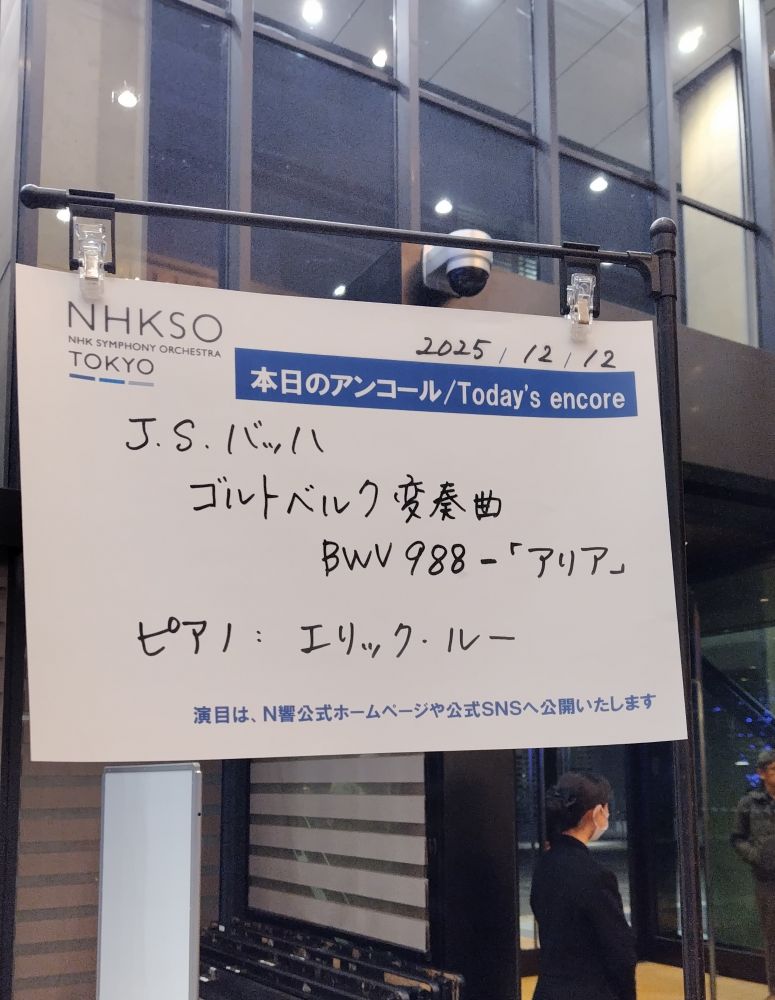 NHKSO
NHK SYMPHONY ORCHESTRA
TOKYO
2025/12/12
本日のアンコール/Today's encore
J.S.バッハ
ゴルトベルク変奏曲
BWV 988-「アリア」
ピアノ: エリック・ルー
演目は、N響公式ホームページや公式SNSへ公開いたします